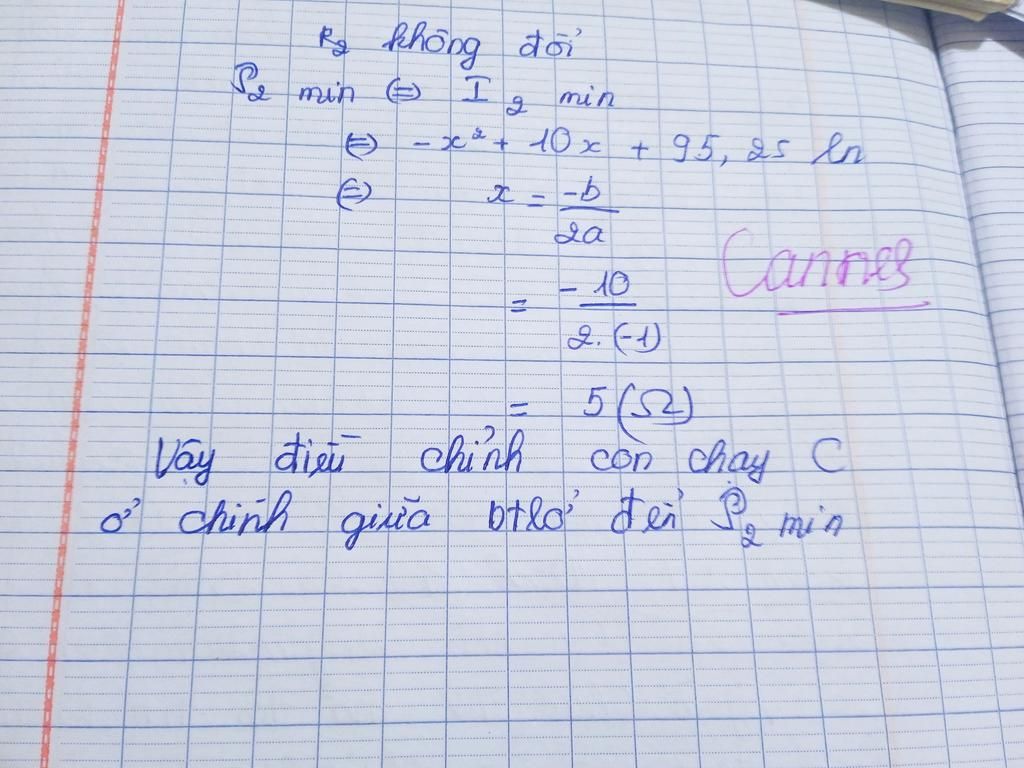 R₂ không đổi
P₂ min ⇔ I₂ min
⇔ -x² + 10x + 95,25 ln
⇔ x = -b / 2a
= -10 / 2.(-1)
Cannes
= 5 (Ω)
Vậy điều chỉnh con chạy C
ở chính giữa btrở để P₂ min